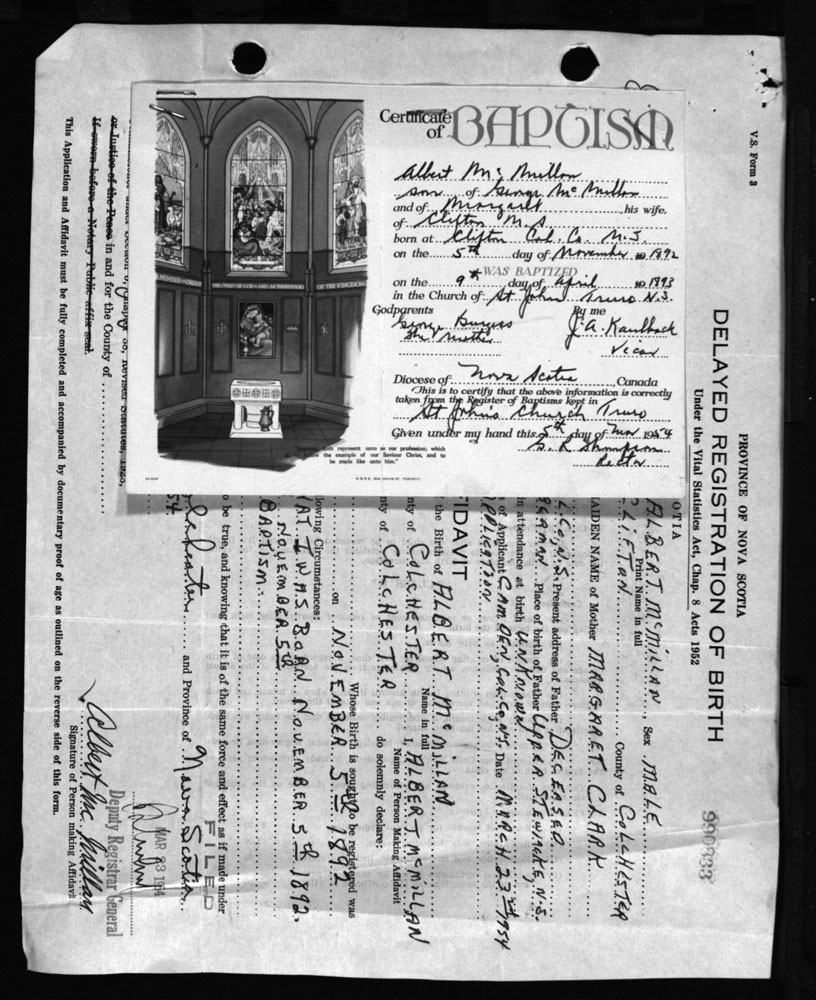 Certificate
of BAPTISM
Albert Mc Millan
son of George Mc Millan
and of Margaret, his wife,
of Clifton N.S.
born at Clifton Col. Co. N.S.
on the 5th day of November 1892
WAS BAPTIZED
on the 9th day of April 1893
in the Church of St John Truro N.S.
Godparents By me
George Burgess J.A. Kaulback
the Mother Vicar
Diocese of Nova Scotia, Canada
This is to certify that the above information is correctly
taken from the Register of Baptisms kept in
St John's Church Truro
Given under my hand this 5th day of 1954
Rector
represent unto us our profession; which
the example of our Saviour Christ, and to
be made like unto him."
V.S. Form 3
PROVINCE OF NOVA SCOTIA
DELAYED REGISTRATION OF BIRTH
Under the Vital Statistics Act, Chap. 8 Acts 1952
990333
OTIA
ALBERT McMILLAN, Sex MALE
Print Name in full
CLIFTON County of COLCHESTER
MAIDEN NAME of Mother MARGARET CLARK
Present address of Father DECEASED
Place of birth of Father UPPER STEWIACKE, N.S.
in attendance at birth UNKNOWN
of Applicant CAMDEN, COL. CO, N.S. Date MARCH 23rd 1954
APPLICATION
IDAVIT
the Birth of ALBERT McMILLAN
Name in full
nty of COLCHESTER I, ALBERT McMILLAN
Name of Person Making Affidavit
nty of COLCHESTER do solemnly declare:
Whose Birth is sought to be registered was
on NOVEMBER 5th 1892
lowing Circumstances:
AT I WAS BORN NOVEMBER 5th 1892.
NOVEMBER 5th
BAPTISM
o be true, and knowing that it is of the same force and effect as if made under
FILED
Colchester and Province of Nova Scotia
54
MAR 23 1954
Deputy Registrar General
Albert Mc Millan
Signature of Person making Affidavit
or Justice of the Peace in and for the County of
If sworn before a Notary Public affix seal.
This Application and Affidavit must be fully completed and accompanied by documentary proof of age as outlined on the reverse side of this form.